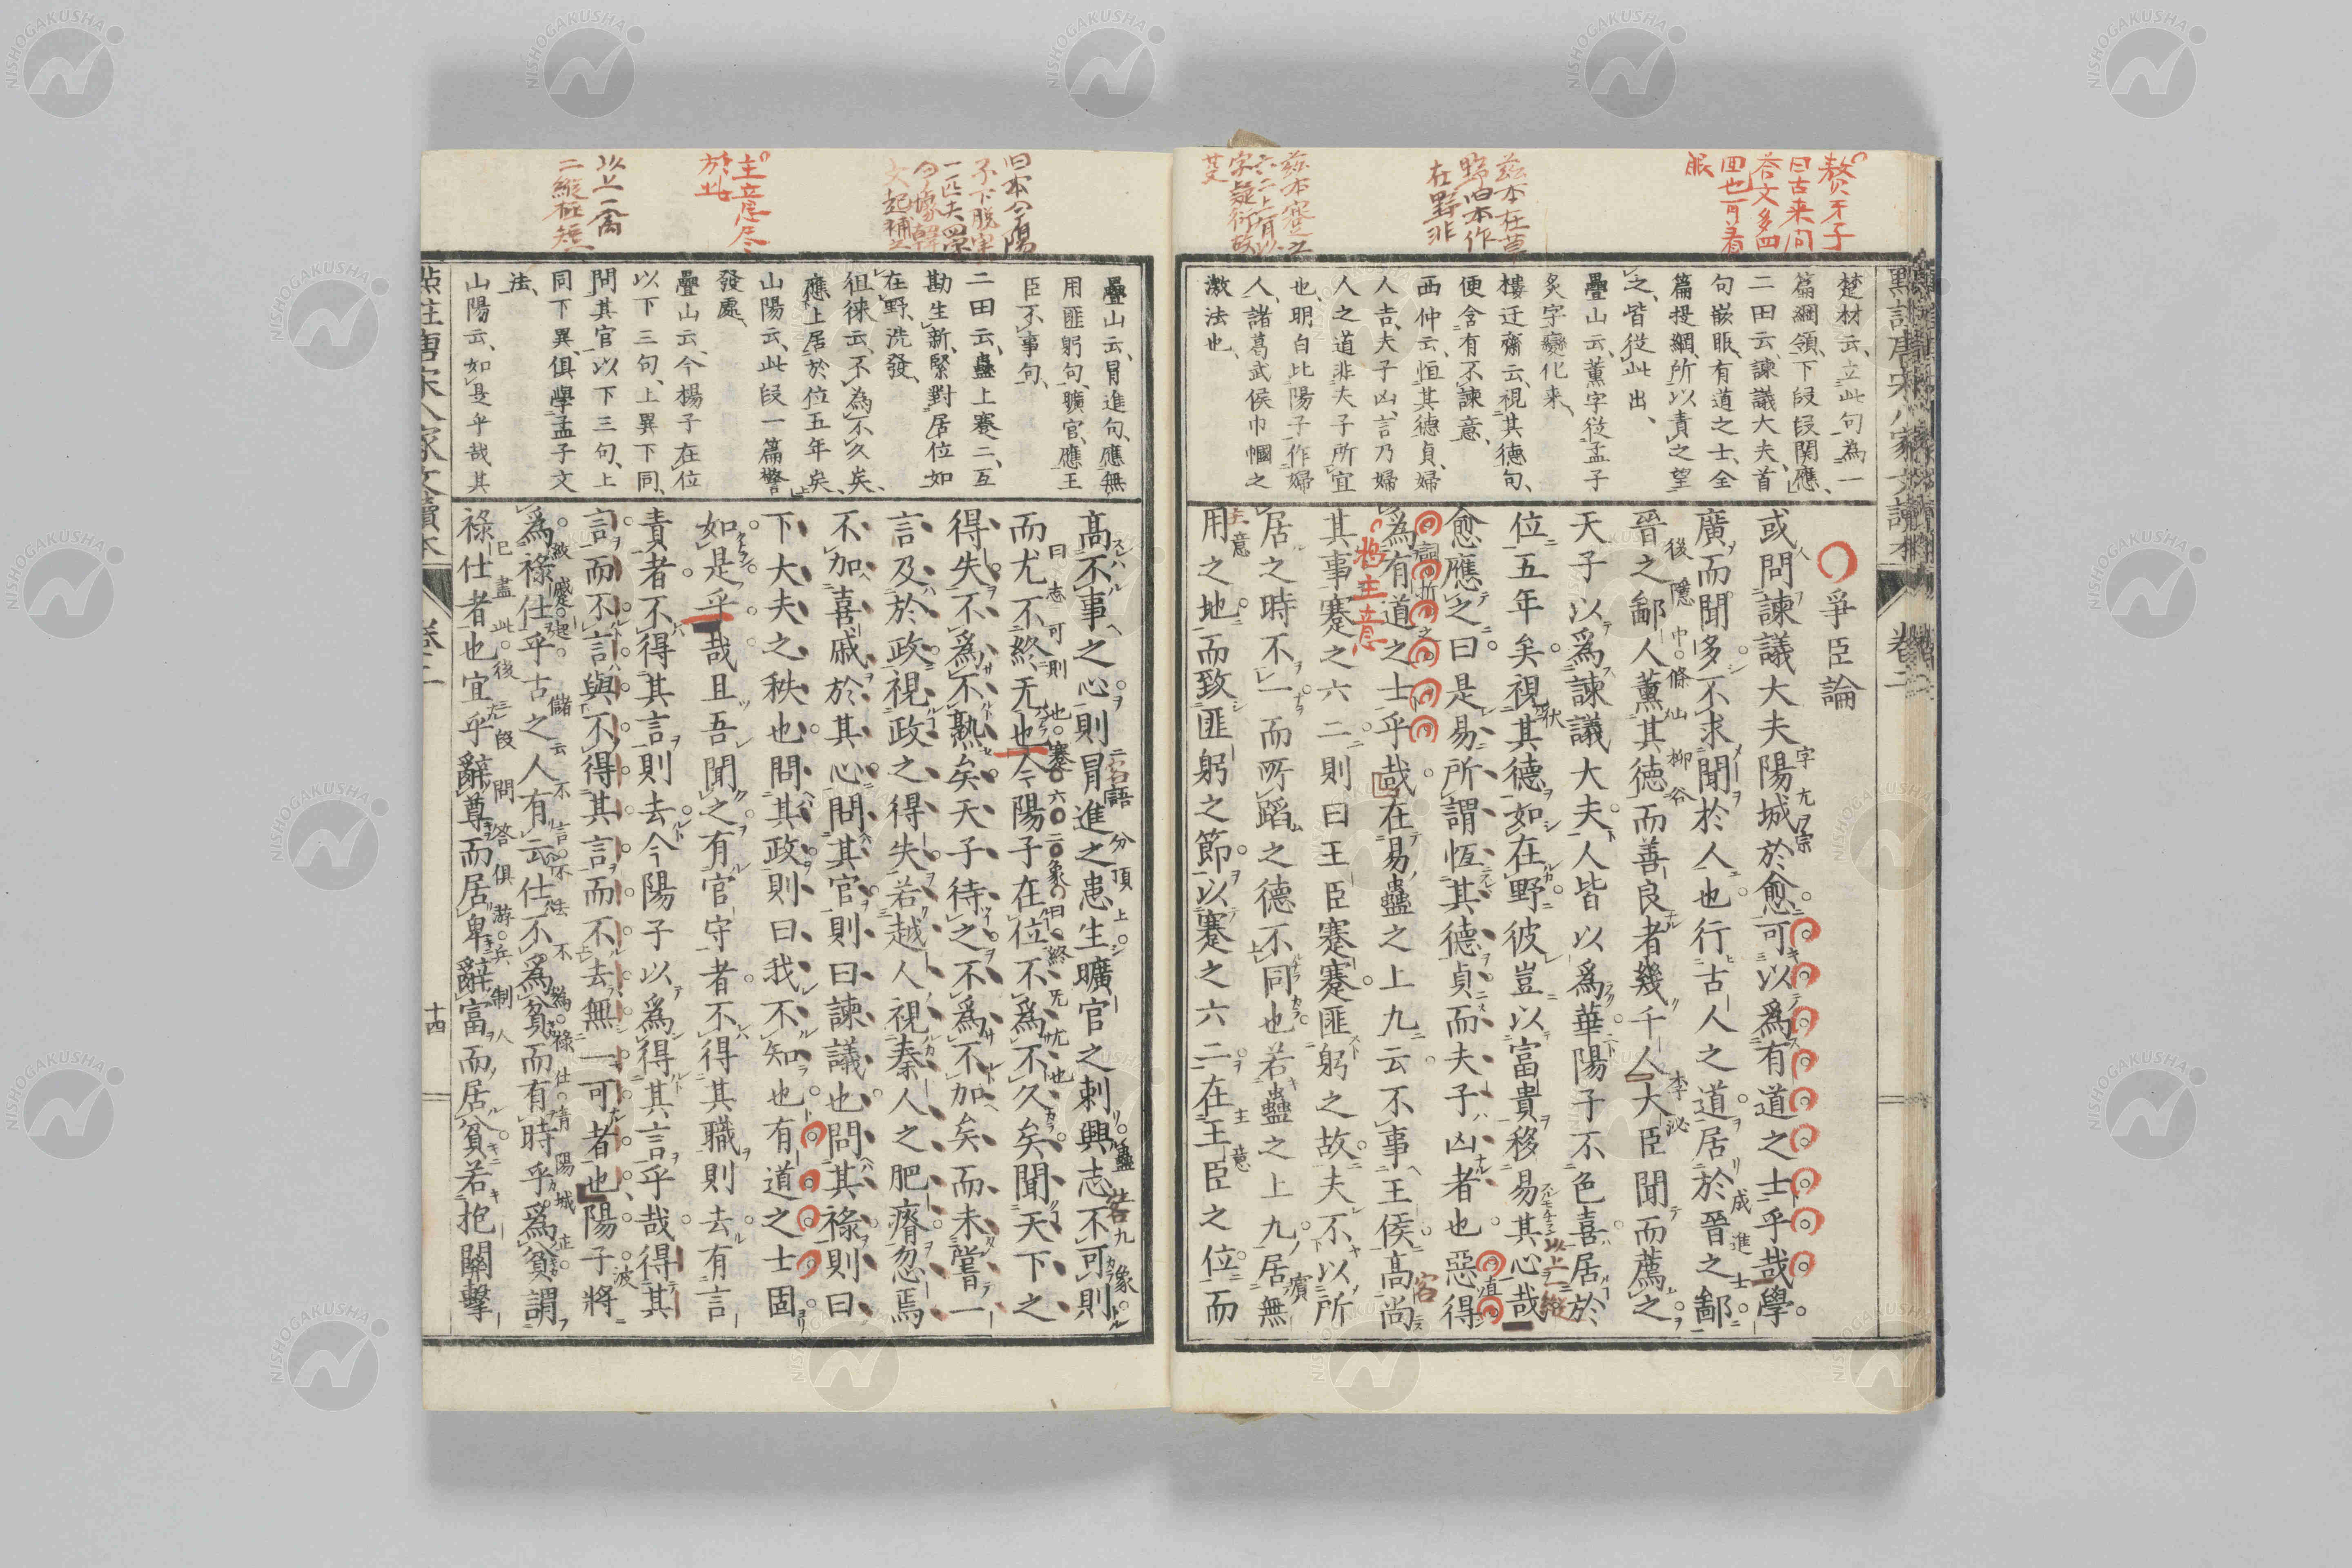 贅牙子
曰古来問
答文多四
四也可着
眼
茲本在草
野旧本作
在野非
茲本蹇之
六二上有以
字疑衍故
芟
楚材云、立此句為一
篇綱領、下段段関應、
二田云、諫議大夫、首
句嵌眼、有道之士、全
篇提綱、所以責之望
之、皆從此出、
疊山云、薫字從孟子
炙字變化来、
樓迂齋云、視其德句、
便含有不諫意、
西仲云、恒其德貞、婦
人吉、夫子凶、言乃婦
人之道、非夫子所宜
也、明白比陽子作婦
人、諸葛武侯巾幗之
激法也、
爭臣論
或問諫議大夫陽城於愈可以爲有道之士乎哉學
廣而聞多不求聞於人也行古人之道居於晉之鄙
晉之鄙人薫其德而善良者幾千人大臣聞而薦之
天子以爲諫議大夫人皆以爲華陽子不色喜居於
位五年矣視其德如在野彼豈以富貴移易其心哉
愈應之曰是易所謂恆其德貞而夫子凶者也惡得
爲有道之士乎哉在易蠱之上九云不事王侯高尚
其事蹇之六二則曰王臣蹇蹇匪躬之故夫不以所
居之時不一而所蹈之德不同也若蠱之上九居無
用之地而致匪躬之節以蹇之六二在王臣之位而
點註唐宋八家文讀本
卷二
旧本今陽
子下脱実
一匹夫四字
今據韓
文起補之
主意尽
於此
以上一禽
二縦極矣
疊山云、冒進句、應無
用匪躬句、曠官、應王
臣不事句、
二田云、蠱上蹇二、互
勘生新、緊對居位如
在野、洗發、
徂徠云、不為不久矣、
應上居於位五年矣、
山陽云、此段一篇警
發處、
疊山云、今楊子在位
以下三句、上異下同、
問其官以下三句、上
同下異、俱學孟子文
法、
山陽云、如是乎哉其
高不事之心則冒進之患生曠官之刺興志不可則
而尤不終无也今陽子在位不爲不久矣聞天下之
得失不爲不熟矣天子待之不爲不加矣而未嘗一
言及於政視政之得失若越人視秦人之肥瘠忽焉
不加喜戚於其心問其官則曰諫議也問其祿則曰
下大夫之秩也問其政則曰我不知也有道之士固
如是乎哉且吾聞之有官守者不得其職則去有言
責者不得其言則去今陽子以爲得其言乎哉得其
言而不言與不得其言而不去無一可者也陽子將
爲祿仕乎古之人有云仕不爲貧而有時乎爲貧謂
祿仕者也宜乎辭尊而居卑辭富而居貧若抱關擊
十四